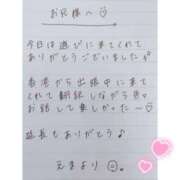 お兄様へ♡
今日は遊びに来てくれて
ありがとうございました
香港から出張中に来て
くれて翻訳しながら色々
お話して楽しかった〜♡
延長もありがとう♪
えまより☺